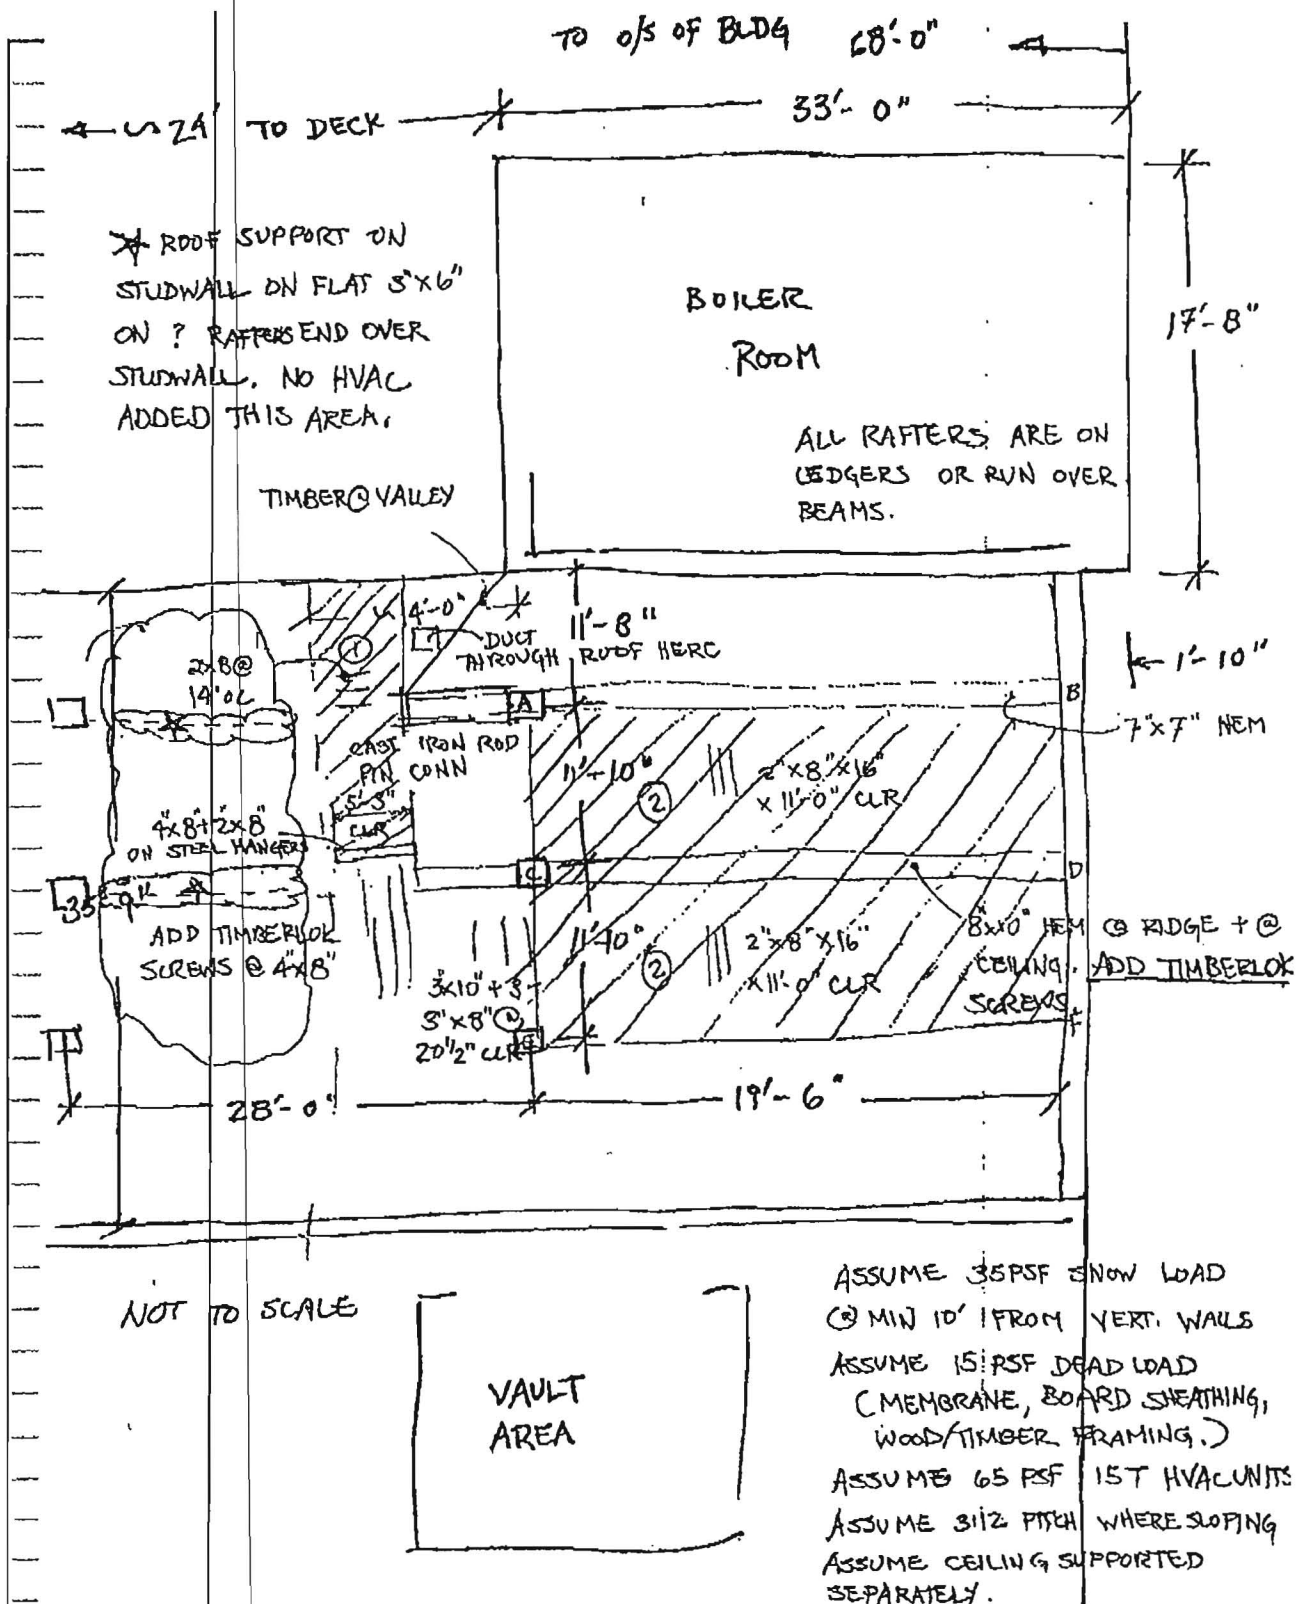 TO O/S OF BLDG 68'-0"
33'-0"
24' TO DECK
ROOF SUPPORT ON
STUDWALL ON FLAT 3"X6"
ON ? RAFTERS END OVER
STUDWALL. NO HVAC
ADDED THIS AREA.
BOILER
ROOM
17'-8"
ALL RAFTERS ARE ON
LEDGERS OR RUN OVER
BEAMS.
TIMBER@VALLEY
4'-0"
DUCT
THROUGH ROOF HERE
11'-8"
1'-10"
1
2x8@
14"OC
A
B
7"x7" HEM
CAST IRON ROD
PIN CONN
11'-10"
2
2"x8"x16"
x 11'-0" CLR
5'-3"
CLR
4"x8"+2"x8"
ON STEEL HANGERS
C
D
35'-9"
ADD TIMBERLOK
SCREWS @ 4"x8"
11'-10"
2
2"x8"x16"
x 11'-0" CLR
8"x10" HEM @ RIDGE + @
CEILING. ADD TIMBERLOK
SCREWS
3x10"+3
3"x8"@
20 1/2" CLR
E
F
28'-0"
19'-6"
NOT TO SCALE
VAULT
AREA
ASSUME 35PSF SNOW LOAD
@ MIN 10' FROM VERT. WALLS
ASSUME 15 PSF DEAD LOAD
(MEMBRANE, BOARD SHEATHING,
WOOD/TIMBER FRAMING.)
ASSUME 65 PSF 15T HVAC UNITS
ASSUME 3:12 PITCH WHERE SLOPING
ASSUME CEILING SUPPORTED
SEPARATELY.